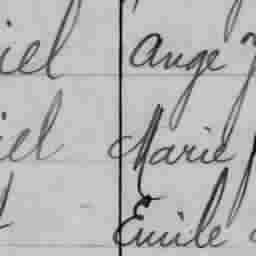 iel Ange
iel Marie
Emile